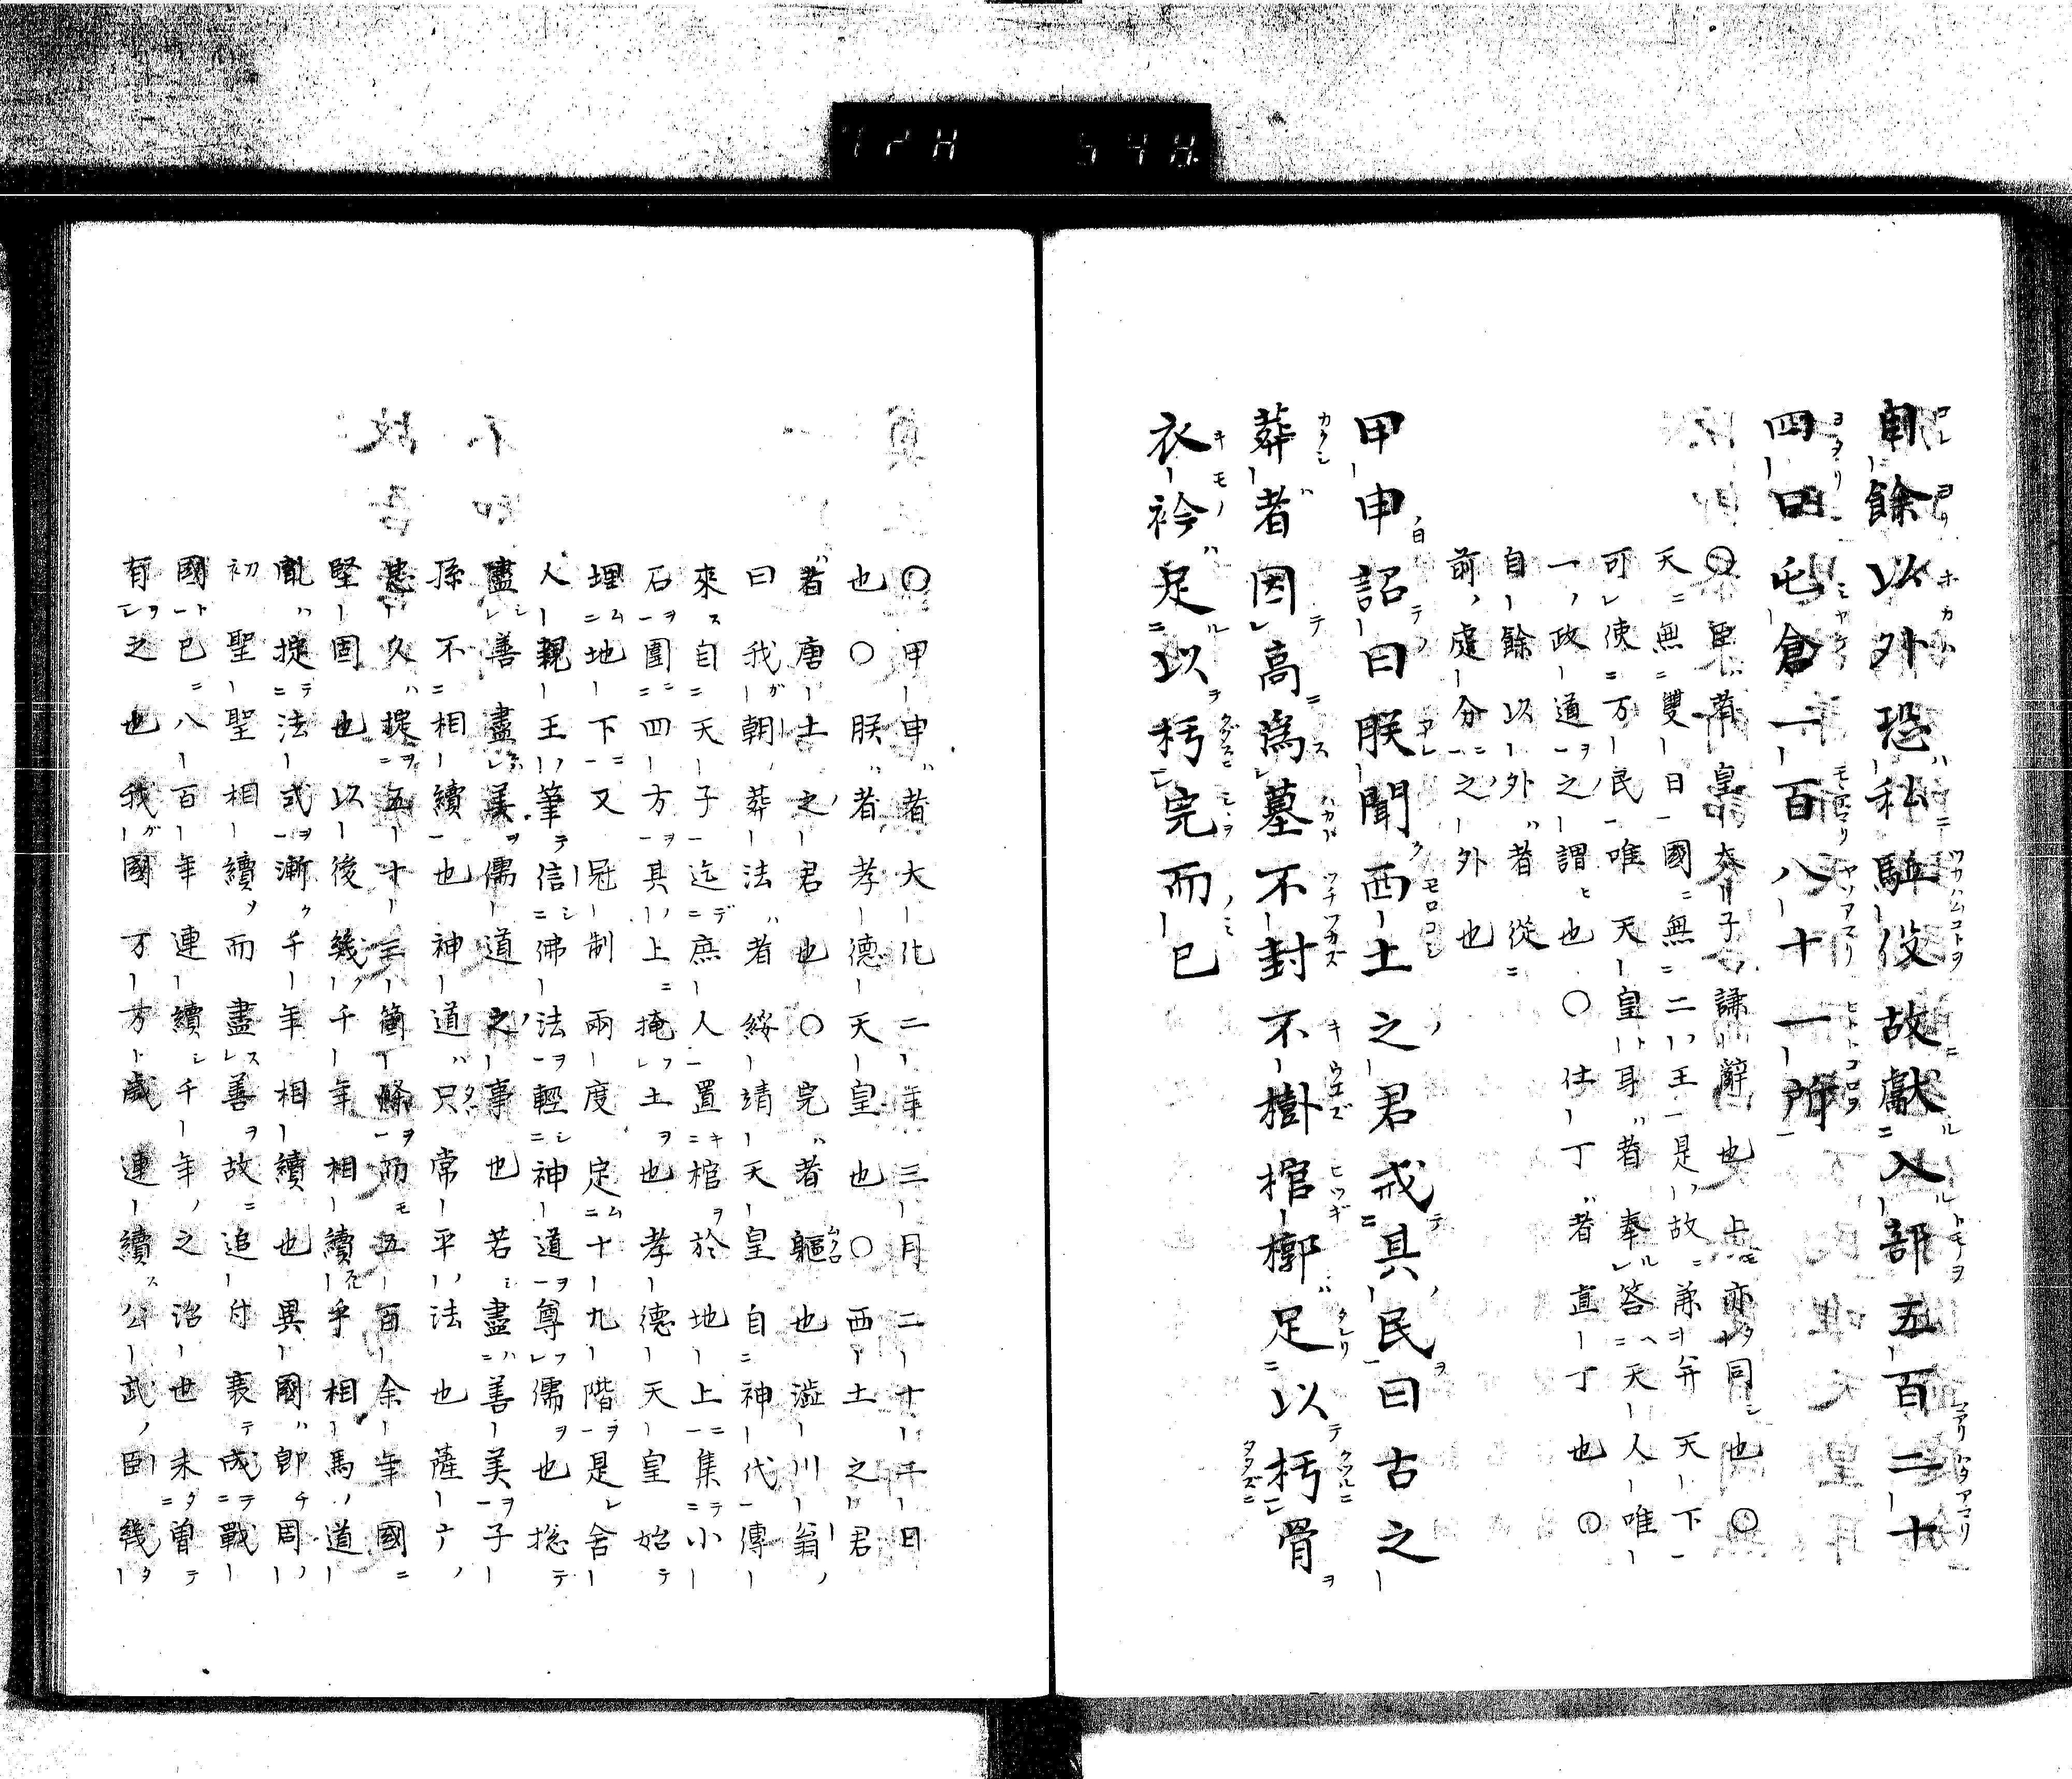 自餘以外恐私駈役故献入部五百二十
四口屯倉一百八十一所
〇 臣者皇太子謙辞也上亦同也〇
天無雙日國無二王是故兼并天下
可使万民唯天皇耳者奉答天人唯
一政道之謂也〇仕丁者直丁也〇
自餘以外者從
前處分之外也
甲申詔曰朕聞西土之君戒其民曰古之
葬者因高為墓不封不樹棺槨足以朽骨
衣衿足以朽完而已
〇甲申者大化二年三月二十二日
也〇朕者孝德天皇也〇西土之君
者唐土之君也〇完者軀也澁川翁
曰我朝葬法者綏靖天皇自神代傳
來自天子迄庶人置棺於地上集小
石圍四方其上掩土也孝德天皇始
埋地下又冠制兩度定十九階是舍
人親王筆信佛法輕神道尊儒也揔
盡善盡美儒道之事也若盡善美子
孫不相續也神道只常平法也
久掟五十三箇條而五百余年國
堅固也以後幾千年相續乎相馬道
亂掟法式漸千年相續也異國即周
初聖聖相續而盡善故追付衰成戰
國已八百年連續千年之治世未曽
有之也我國万万歲連續公武臣幾